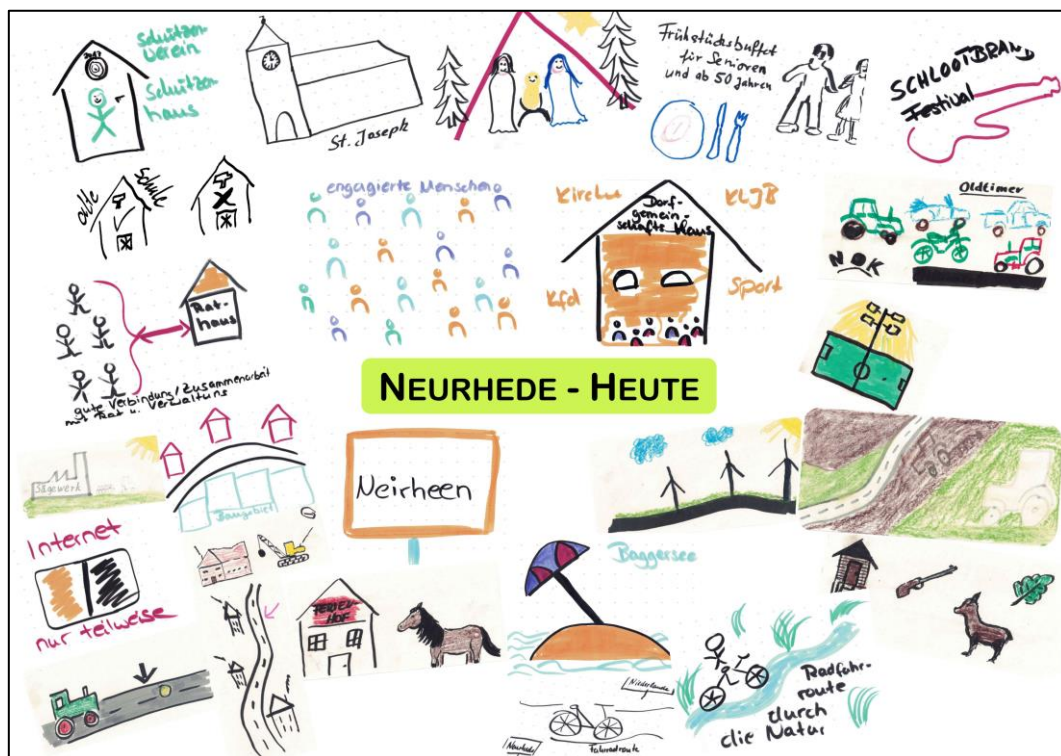 2017
Schützen
verein
Schützen
haus
St. Joseph
Frühstücksbuffet
für Senioren
und ab 50 Jahren
SCHLOOTBRAND
Festival
alte
Schule
engagierte Menschen
Kirche
KLJB
Dorf-
gemein-
schafts-Haus
Kfd
Sport
Oldtimer
NOK
Rat-
haus
gute Verbindung/Zusammenarbeit
mit Rat u. Verwaltung
NEURHEDE - HEUTE
Sägewerk
Baugebiet
Neirheen
Internet
nur teilweise
FERIEN-
HOF
Baggersee
Niederlande
Neurhede
Fahrradroute
Radfahr-
route
durch
die Natur